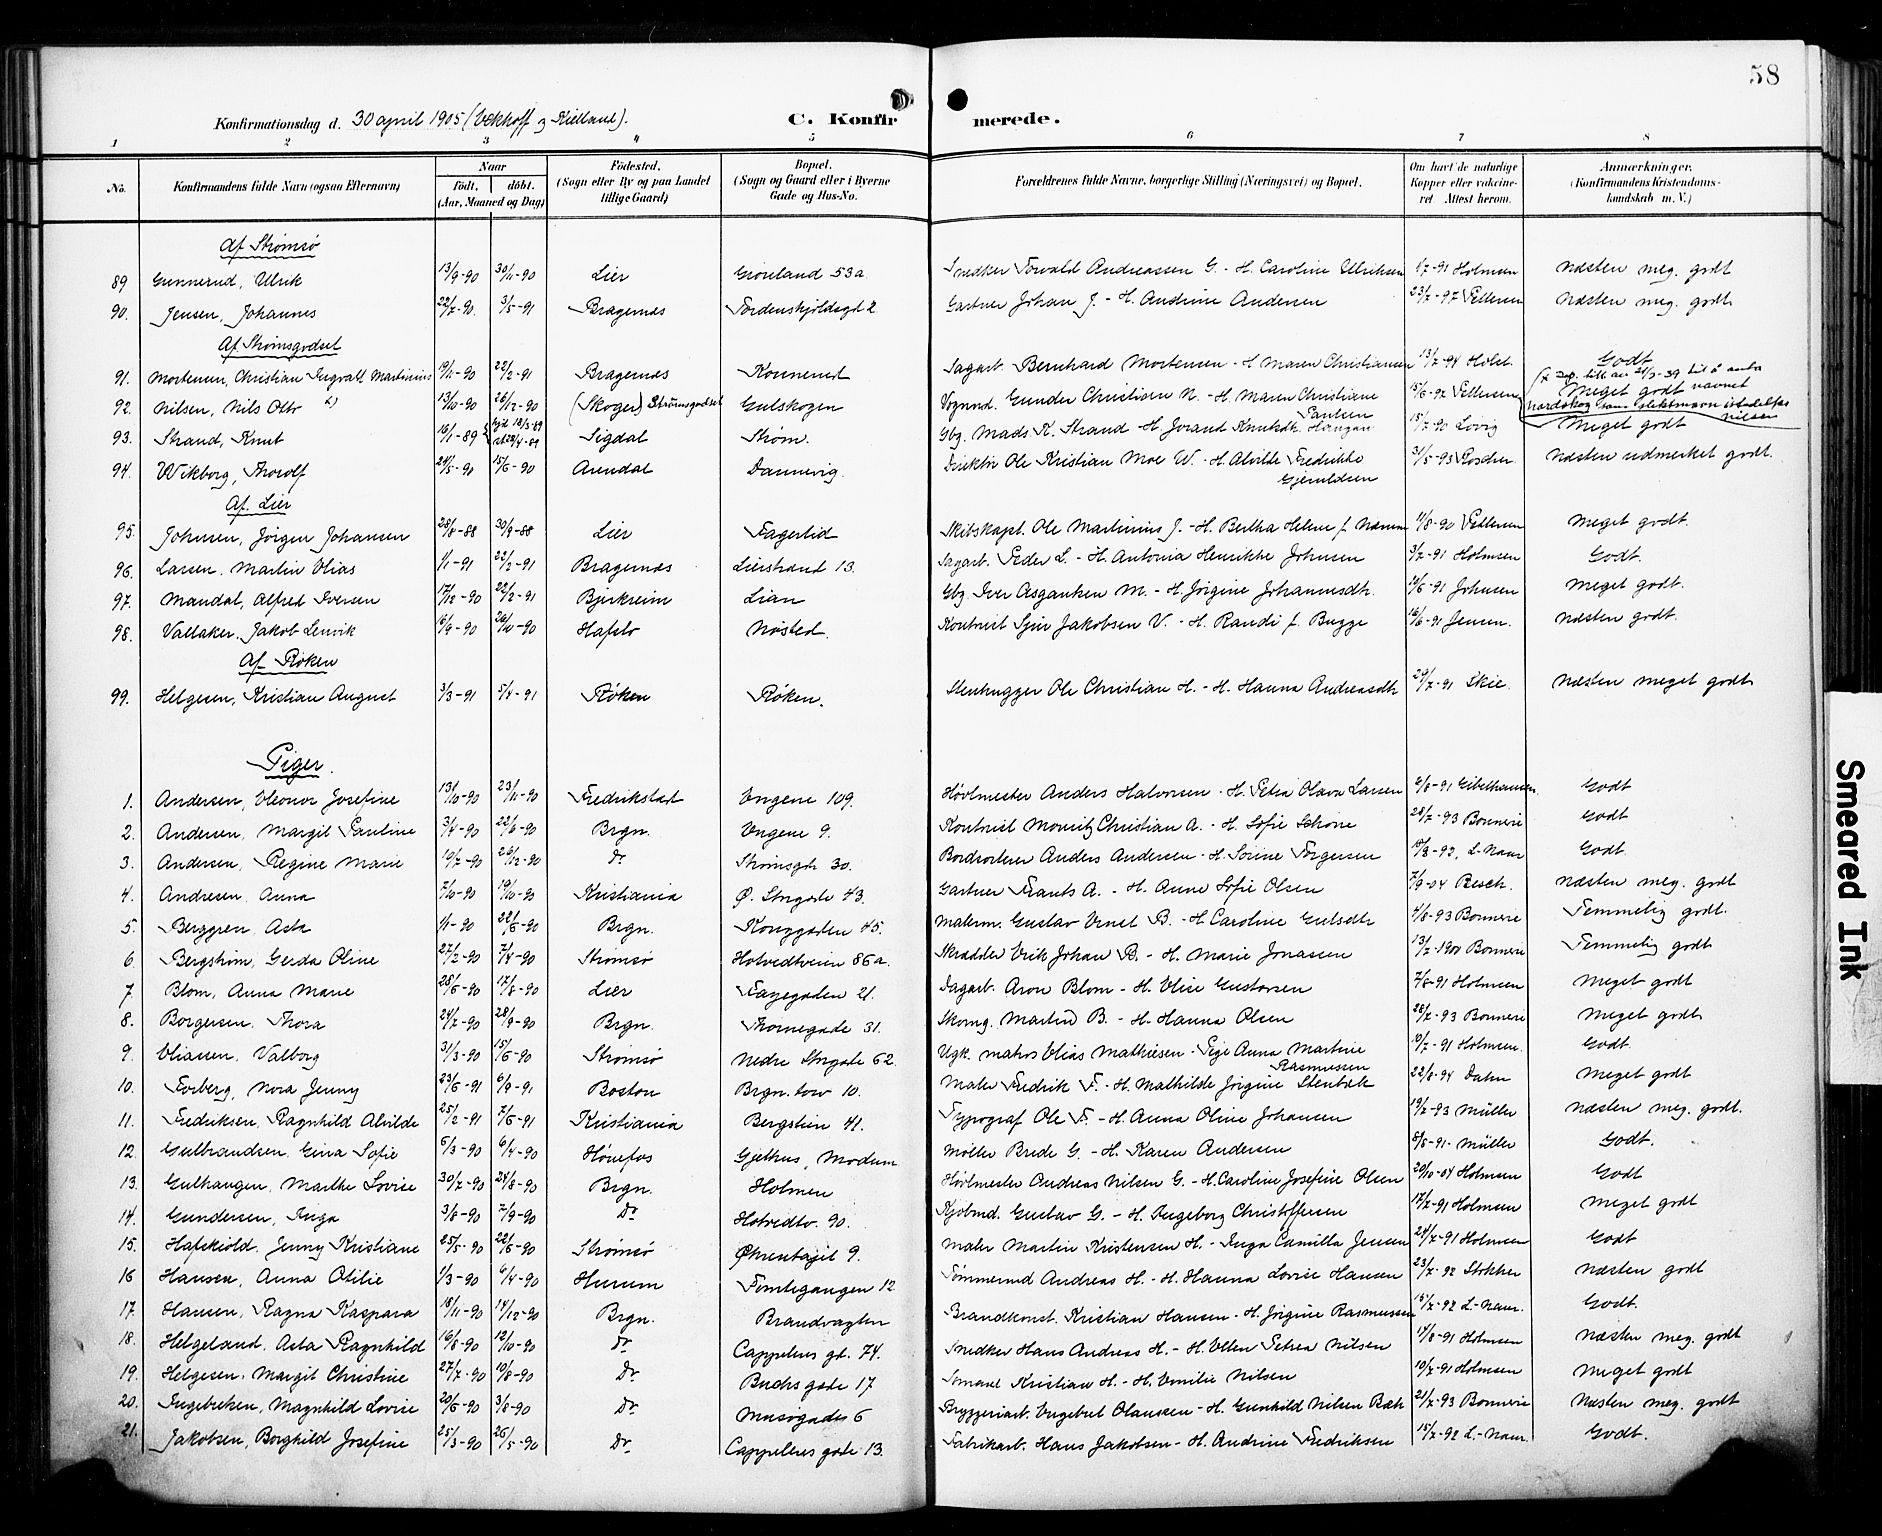 58
Konfirmationsdag d. 30 april 1905 (Vekhoff og Kielland).
C. Konfirmerede.
1 2 3 4 5 6 7 8
No. Konfirmandens fulde Navn (ogsaa Efternavn) Naar født, døbt. (Aar, Maaned og Dag) Födested. (Sogn eller By og paa Landet tillige Gaard) Bopæl. (Sogn og Gaard eller i Byerne Gade og Hus-No. Forældrenes fulde Navne, borgerlige Stilling (Næringsvei) og Bopæl. Om havt de naturlige Kopper eller vakcineret. Attest herom. Anmærkninger. (Konfirmandens Kristendomskundskab m. V.)
Af Strømsø
89 Gunnerud, Ulrik 13/9-90 30/11-90 Lier Grønland 53a Snedker Torvald Andreassen G. - H. Caroline Ulriksen 1/7-91 Holmsen Næsten meg. godt
90. Jensen, Johannes 22/7-90. 3/5-91 Bragernæs Tordenskjoldsgd 2 Gartner Johan J. - H. Andrine Andersen 23/7-97 Pettersen Næsten meg. godt
Af Strømsgodset
91. Mortensen, Christian Ingvall Martinius 19/11-90 22/2-91 Bragernæs Konnerud Sagarb. Bernhard Mortensen - H Maren Christiansen 13/7-94 Holst. Godt
92. Nilsen, Nils Otto x) 13/10-90 26/12-90 (Skoger) Strømsgodset Gulskogen Vognmd. Gunder Christian N. - H. Maren Christiane Paulsen 15/6-92 Pettersen Meget godt
navnet Nordskog som slektsnavn istedetfor Nilsen
93. Strand, Knut 16/1-89 hjd 18/3-89 Sigdal Strøm. Gbg. Mads K. Strand - H. Jorand Knutsdt. Haugan 15/7-90 Lovig Meget godt
94. Wikborg, Thorolf 24/5-90 15/6-90 Arendal Dannevig. Direktør Ole Kristian Moe W. - H. Alvilde Fredrikke Gjeruldsen 31/5-93 Roscher. Næsten udmerket godt.
Af Lier
95. Johnsen, Jørgen Johansen 28/8-88 30/9-88 Lier Fagertid Skibskapt. Ole Martinius J. - H. Bertha Helene f. Næsum 11/8-90 Pettersen Meget godt.
96. Larsen. Martin Elias 1/1-91 22/2-91 Bragernæs Lierstrand 13. Sagarb. Peder L. - H. Antonia Henrikke Johnsen 3/7-91 Holmsen Godt.
97. Mandal, Alfred Iversen 17/12-90 22/2-91 Bjerkreim Lian Gbg. Iver Asgautsen M. - H. Jørgine Johannesdt. 14/6-91 Johnsen Meget godt.
98. Vallaker. Jakob Lenvik 16/9-90 26/10-90 Hafslo Nøsted. Kontorist Sjur Jakobsen V. - H. Randi f. Bugge 16/6-91 Jensen. Næsten godt.
Af Røken
99. Helgesen, Kristian August 3/3-91 5/4-91 Røken Røken. Stenhugger Ole Christian H. - H. Hanna Andreasdt. 29/7-91 Skie. Næsten meget godt
Piger.
1. Andersen, Eleonor Josefine 13/10-90 23/11-90 Fredrikstad Engene 109. Høvlmester Anders Halvorsen - H. Petra Olava Larsen 6/8-91 Gibelhausen. Godt
2. Andersen, Margit Pauline 3/4-90 22/6-90 Brgn. Engene 9. Kontorist Mouritz Christian A. - H. Sofie Schöne 28/7-93 Bonnevie Godt
3. Andersen, Regine Marie 19/7-90 26/12-90 Do Strømsgt. 30. Bordsorterer Anders Andersen - H. Sørine Torgersen 19/8-92, L. Naur Godt
4. Andresen Anna 7/10-90 19/10-90 Kristiania Ø. Storgade 43. Gartner Frants A. - H. Anne Sofie Olsen 7/9-04 Besch. Næsten meg. godt
5. Berggren Asta 1/1-90 22/6-90 Brgn. Konggaden 45. Malerm. Gustav Ernst B. - H. Caroline Gulsdtr. 4/8-93 Bonnevie Temmelig godt.
6. Bergstrøm, Gerda Oline 27/2-90 7/4-90 Strømsø Hotvedtveien 86a. Skrædder Erik Johan B. - H. Marie Jonassen 13/7-1900 Bonnevie Temmelig godt
7. Blom, Anna Marie 28/6-90 17/8-90 Lier Fayegaden 21. Sagarb. Aron Blom - H. Elise Gustavsen 7/8-91 Holmsen Meget godt
8. Borgersen. Thora 24/7-90 28/9-90 Brgn. Thornegade 31. Skomg. Martin B. - H. Hanna Olsen 28/7-93 Bonnevie Meget godt
9. Eliassen. Valborg 31/3-90 15/6-90 Strømsø Nedre Storgade 62. Ugk. matros Elias Mathiesen - Pige Anna Martine Rasmussen 9/7-91 Holmsen. Godt.
10. Forberg, Nora Jenny 23/6-91 6/9-91 Boston Brgn. tvær 10. Maler Fredrik F. - H. Mathilde Jørgine Stenbæk 22/8-94 Dahn Meget godt
11. Fredriksen, Ragnhild Alvilde 25/2-91 7/6-91 Kristiania Bergstien 41. Typograf Ole F. - H. Anna Oline Johansen 19/7-93 Müller Næsten meg. godt.
12. Gulbrandsen. Gina Sofie 5/3-90 6/4-90 Hønefos Gjethus, Modum Møller Brede G. - H. Karen Andersen 8/8-91. Müller Godt.
13. Gulhaugen, Marthe Lovise 30/7-90 24/8-90 Brgn. Holmen Høvlmester Andreas Nilsen G. - H. Caroline Josefine Olsen 20/10-04 Holmsen Godt
14. Gundersen, Inga 3/8-90 7/9-90 Do Hotvedtv. 90. Kjøbmd. Gustav G. - H. Ingeborg Christoffersen 17/7-91 Holmsen Meget godt
15. Hafskiold. Jenny Kristiane 25/5-90 22/6-90 Strømsø Øhrentagst 9. Maler Martin Kristensen H. - Inga Camilla Jensen 24/7-91 Holmsen Godt
16 Hansen, Anna Otilie 1/3-90 6/4-90 Hurum Tomtegangen 12. Tømmermd Andreas H. - H. Hanna Lovise Hansen 23/7-92 Stokker Næsten godt
17. Hansen, Ragna Kaspara 18/11-90 14/12-90 Brgn. Brandvagten Brandkonst. Kristian Hansen - H. Jørgine Rasmussen 15/7-92 L. Naur. Godt.
18. Helgeland. Asta Ragnhild 16/8-90 12/10-90 Do Cappelens gt. 74. Snedker Hans Andreas H. - H. Ellen Petrea Nilsen 14/8-91 Holmsen Næsten meg. godt
19. Helgesen. Margit Christine 27/7-90 10/8-90 Do Buchs gade 17 Sømand Kristian H. - H. Emilie Nilsen 10/7-91 Holmsen Meget godt
20. Ingebretsen, Magnhild Lovise 20/6-90 3/8-90 Do Mæsøgades 6 Bryggeriarb. Engebret Olausen - H. Gunhild Nilsen Bæk 21/7-93 Bonnevie Næsten meg. godt
21. Jakobsen, Borghild Josefine 25/3-90 26/5-90 Do Cappelens gade 13. Fabrikarb. Hans Jakobsen - H. Andrine Fredriksen 15/7-92 L. Naur. Godt.
Smeared Ink